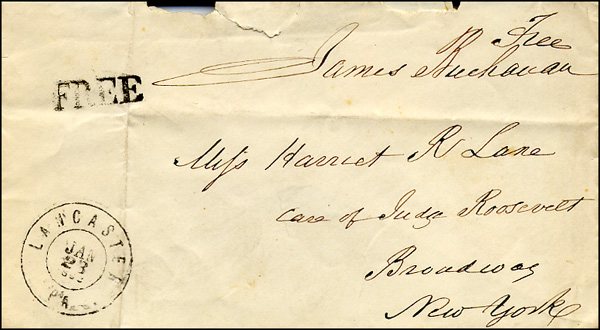 Free
James Buchanan
FREE
Miss Harriet R Lane
care of Judge Roosevelt
Broadway
New York
LANCASTER
JAN
23
Pa.